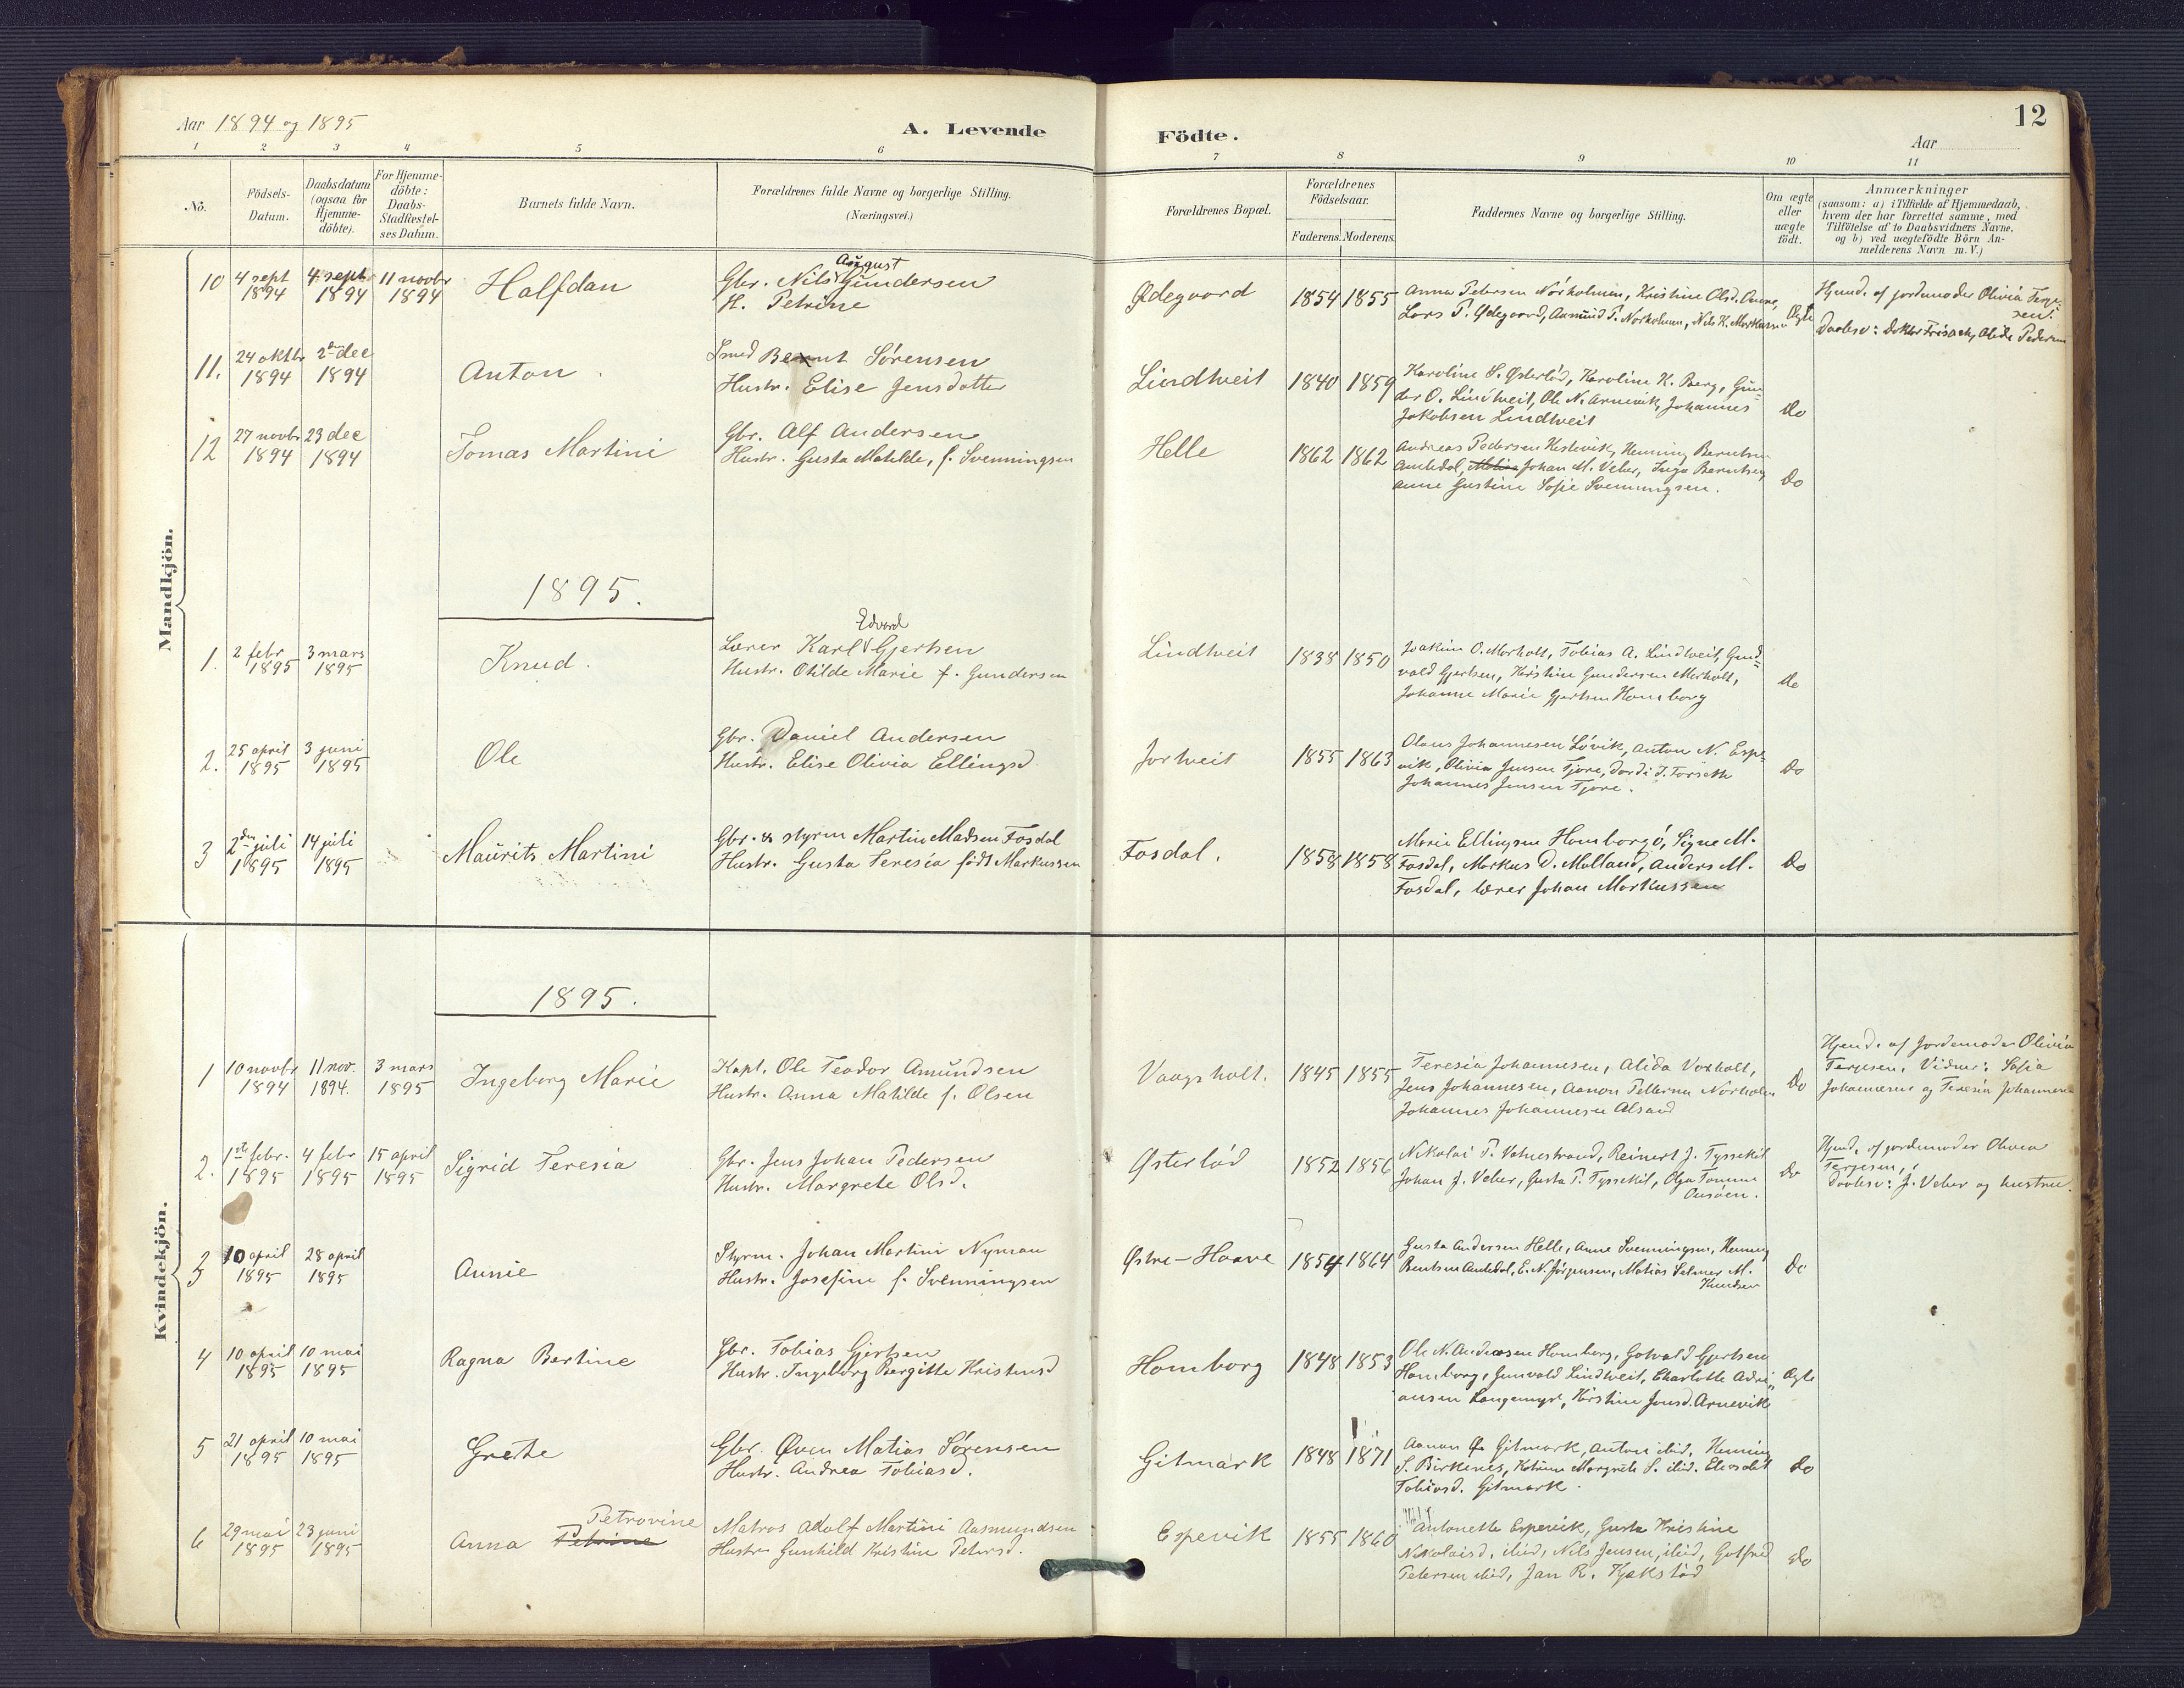 Aar 1894 og 1895
A. Levende
Födte.
Aar
12
1 2 3 4 5 6 7 8 9 10 11
No.
Födsels-
Datum.
Daabsdatum
(ogsaa for
Hjemme-
döbte).
For Hjemme-
döbte:
Daabs-
Stadfæstel-
ses Datum.
Barnets fulde Navn.
Forældrenes fulde Navne og borgerlige Stilling.
(Næringsvei.)
Forældrenes Bopæl.
Forældrenes
Födselsaar.
Faderens. Moderens.
Faddernes Navne og borgerlige Stilling.
Om ægte
eller
uægte
födt.
Anmærkninger
(saasom: a) i Tilfælde af Hjemmedaab,
hvem der har forrettet samme, med
Tilföielse af to Daabsvidners Navne,
og b) ved uægtefödte Börn An-
melderens Navn m. V.)
Mandkjön.
10
4 sept
1894
4 sept
1894
11 novbr
1894
Halfdan
August
Gbr. Nils Gundersen
H. Petrine
Ødegaard
1854 1855
Anna Petersen Nörholmen, Kristine Olsd.
Lars P. Ødegaard, Aasmund P. Norholmen, Nils K. Markussen
Ægte
Hjemd. af jordemoder Olivia Terje-
sen.
Daabsv: Alida Pedersen
11.
24 oktbr
1894
2 dec
1894
Anton
Smed Bernt Sørensen
Hustr. Elise Jensdatter
Lindtveit
1840 1859
Karoline S. Østerlöd, Karoline K. Berg, Gun-
der O. Lindtveit, Ole N. Arnevik, Johannes
Jakobsen Lindtveit
do
12
27 novbr
1894
23 dec
1894
Tomas Martini
Gbr. Alf Andersen
Hustr. Gusta Matilde, f. Svenningsen
Helle
1862 1862
Andreas Pedersen Henning Berntsen
Johan M. Veber, Inga Berntsen,
Anne Gustine Sofie Svenningsen.
do
1895.
1.
2 febr
1895
3 mars
1895
Knud.
Edvard
Lærer Karl Gjertsen
Hustr. Otilde Marie f. Gundersen
Lindtveit
1838 1850
Joakim O. Morholt, Tobias A. Lindtveit, Gund-
vald Gjertsen, Kirstine Gundersen Morholt,
Johanne Marie Gjertsen Homborg
do
2.
25 april
1895
3 juni
1895
Ole
Gbr. Daniel Andersen
Hustr. Elise Olivia Ellingsd.
Jortveit
1855 1863
Olaus Johannesen Lövik, Anton N. Espe-
vik, Olivia Jensen Tjore,
Johannes Jensen Tjore.
do
3
2den juli
1895
14 juli
1895
Maurits Martini
Gbr. & styrm Martin Madsen Fosdal
Hustr. Gusta Teresia född Markussen
Fosdal.
1858 1858
Marie Ellingsen Homborgö, Signe M.
Fosdal, Markus D. Molland, Anders M.
Fosdal, lærer Johan Markussen
do
Kvindekjön.
1895.
1
10 novbr
1894
11 nov.
1894.
3 mars
1895
Ingeborg Marie
Kapt. Ole Teodor Amundsen
Hustr. Anna Matilde f. Olsen
Vaagsholt.
1845 1855
Teresia Johannesen, Alida Voxholt,
Jens Johannesen, Aanon Pettersen Norholm
Johannes Johannesen Alsand
do
Hjemd. af jordemoder Olivia
Terjesen, Vidner: Sofia
Johannesen og Teresia Johannesen
2.
1ste febr.
1895
4 febr
1895
15 april
1895
Sigrid Teresia
Gbr. Jens Johan Pedersen
Hustr. Margrete Olsd.
Østerlöd
1852 1856
Nikolai P. Reinert J. Tyssekil
Johan J. Veber, Gusta T. Tyssekil, Olga
do
Hjemd. af jordemoder Olivia
Terjesen,
Daabsv: J. Veber og hustru.
3
10 april
1895
28 april
1895
Annie
Styrm. Johan Martini Nyman
Hustr. Josefine f. Svenningsen
Østre-Haave
1854 1864
Gusta Andersen Helle, Anne Svenningsen, Henning
Berntsen E. N. Jörgensen, Matias Selmer M.
Knudsen
do
4
10 april
1895
10 mai
1895
Ragna Bertine
Gbr. Tobias Gjertsen
Hustr. Ingeborg Bergitte Kristensd
Homborg
1848 1853
Ole N. Andreasen Homborg, Gotvald Gjertsen
Homborg, Gunvald Lindtveit, Charlotte Adri-
ansen Langemyr, Kirstine Jensd. Arnevik
Ægte
5
21 april
1895
10 mai
1895
Grete
Gbr. Øven Matias Sørensen
Hustr. Andrea Tobiasd.
Gitmark
1848 1871
Aanon Ø. Gitmark, Anton ibid. Henning
S. Birkenes, Margrete S. ibid. Elisabet
Tobiasd. Gitmark.
do
6
29 mai
1895
23 juni
1895
Petrovine
Anna Petrine
Matros Adolf Martini Aasmundsen
Hustr Gunhild Kristine Petersd.
Espevik
1855 1860
Antonette Espevik, Gusta Kristine
Nikolaisd. ibid, Nils Jensen, ibid, Gotfred
Petersen ibid, Jan R.
do